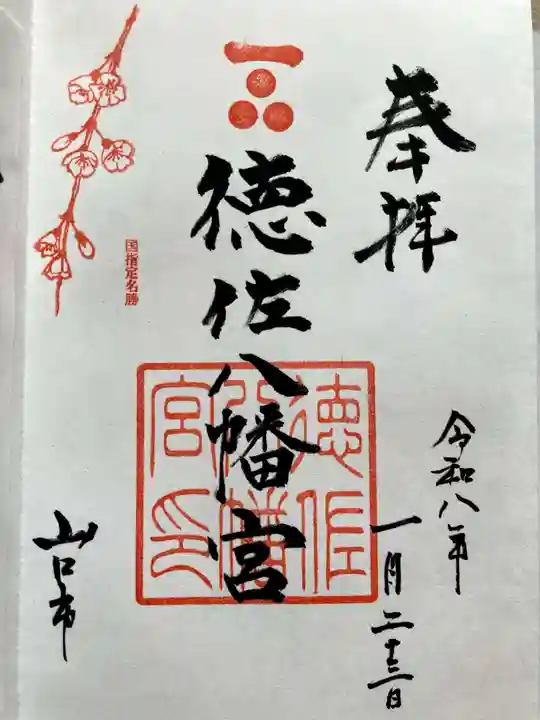 奉拝
徳佐八幡宮
国指定名勝
徳佐
八幡
宮印
令和八年
一月二十三日
山口市